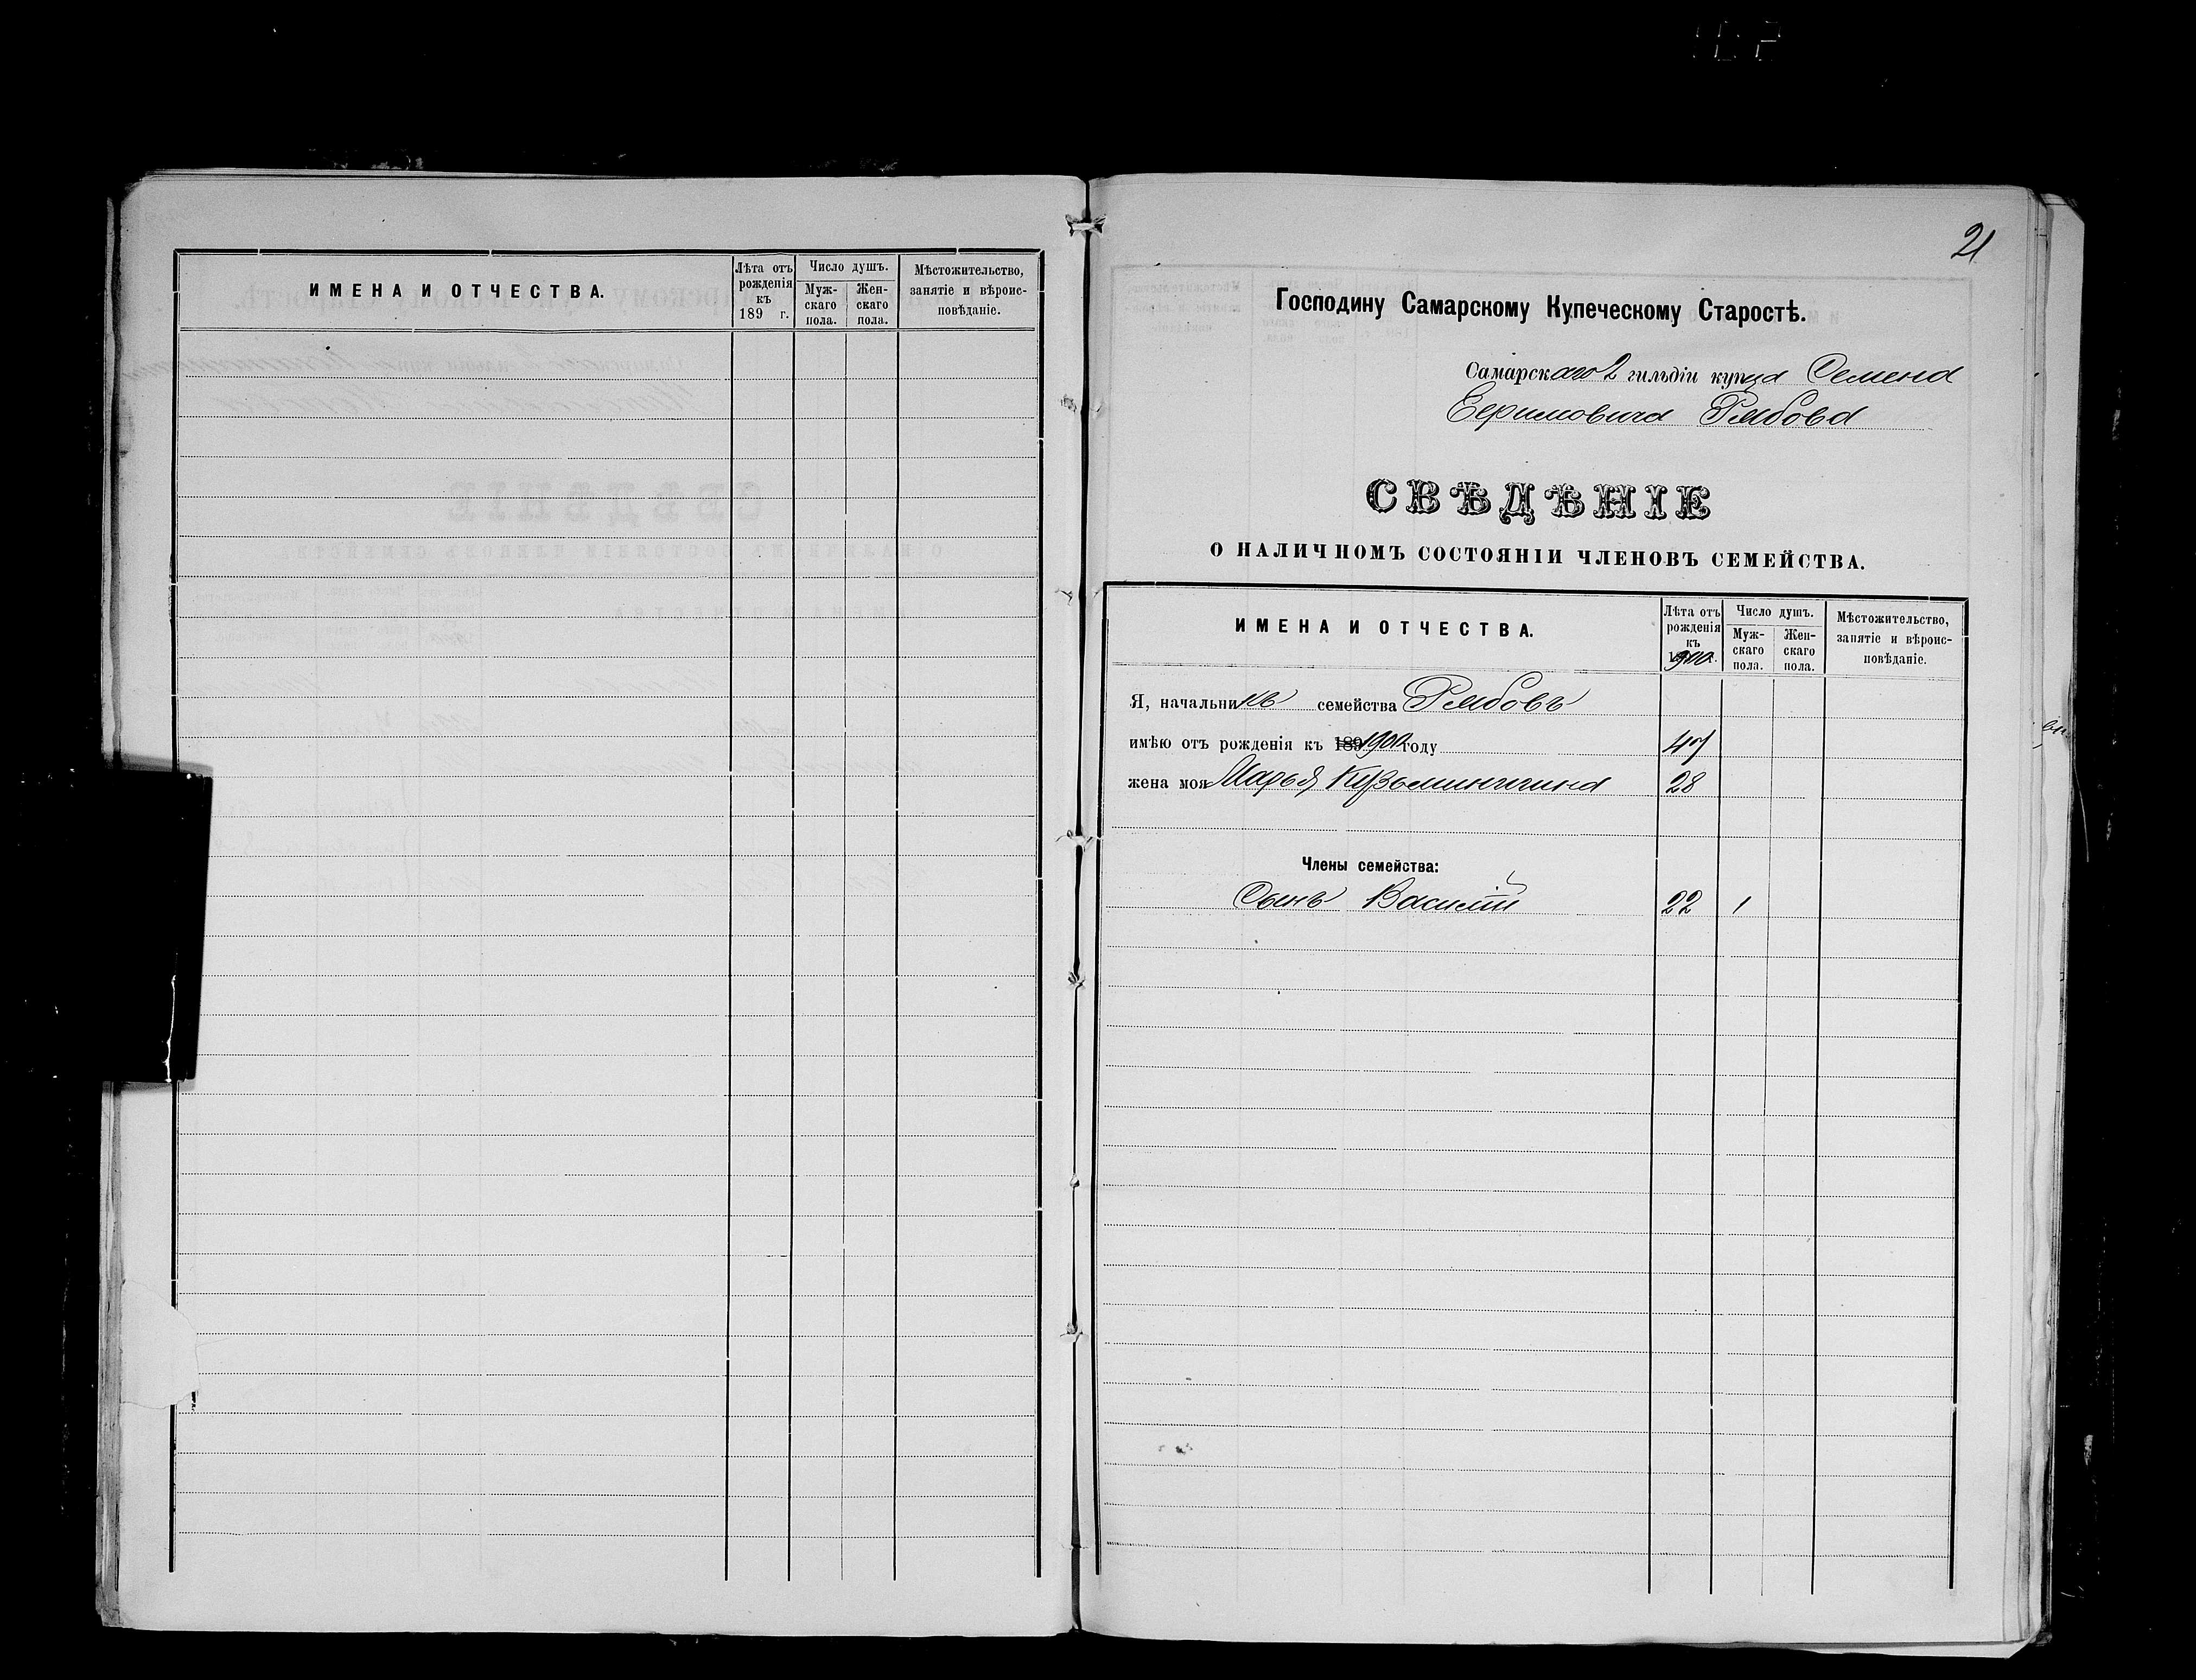 ИМЕНА И ОТЧЕСТВА.
Лѣта отъ рожденія къ 189 г.
Число душъ.
Муж-скаго пола.
Жен-скаго пола.
Мѣстожительство, занятіе и вѣроис-повѣданіе.
21
Господину Самарскому Купеческому Старостѣ.
Самарскаго 2 гильдіи купца Семена
Ефимовича Рябова
СВѢДѢНІЕ
О НАЛИЧНОМЪ СОСТОЯНІИ ЧЛЕНОВЪ СЕМЕЙСТВА.
ИМЕНА И ОТЧЕСТВА.
Лѣта отъ рожденія къ 1900 г.
Число душъ.
Муж-скаго пола.
Жен-скаго пола.
Мѣстожительство, занятіе и вѣроис-повѣданіе.
Я, начальникъ семейства Рябовъ
имѣю отъ рожденія къ 189 1900 году 47
жена моя Марья Кузьминична 28
Члены семейства:
Сынъ Василій 22 1